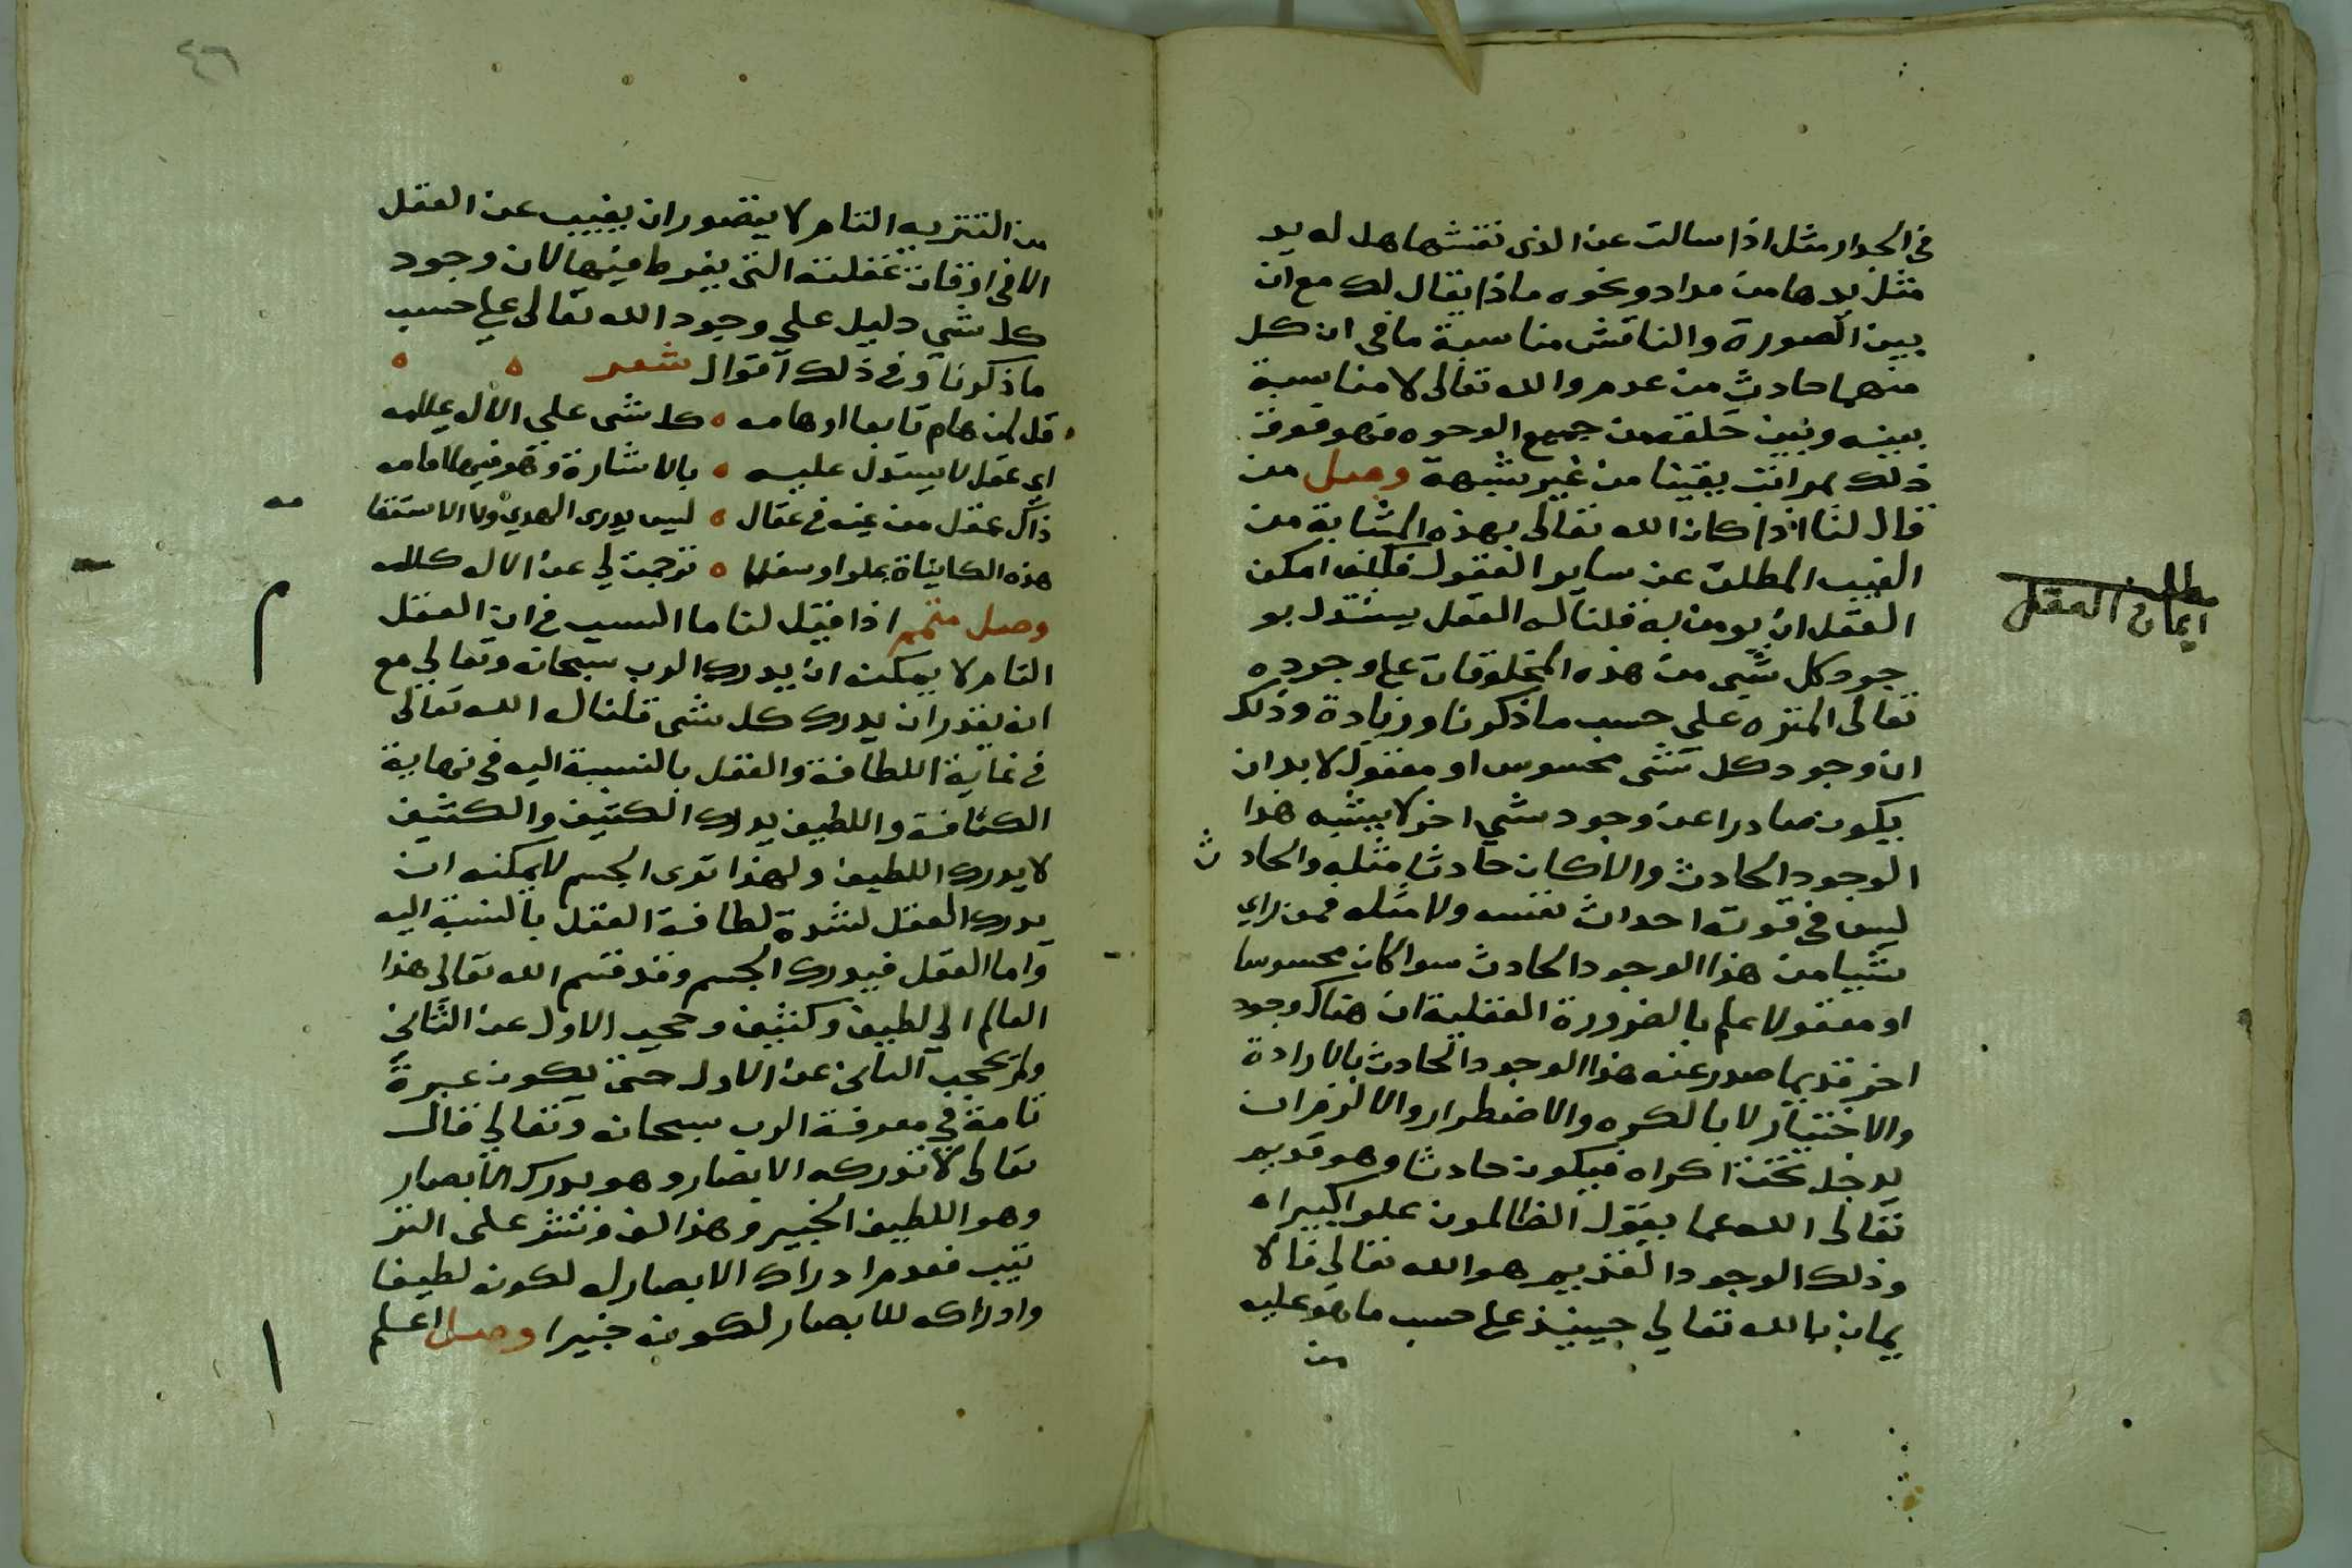 في الجدار مثل اذا سالت عن الذي نقشها هل له يد
مثل يدها من مداد ونحوه ماذا يقال لك مع ان
بين الصورة والناقش مناسبة ما في ان كل
منهما حادث من عدم والله تعالى لا مناسبة
بينه وبين خلقه من جميع الوجوه فهو فوق
ذلك بمراتب يقينا من غير شبهة وصل من
قال لنا اذا كان الله تعالى بهذه المثابة من
الغيب المطلق عن ساير العقول فكيف امكن
العقل ان يومن به قلنا له العقل يستدل بو
جود كل شي من هذه المخلوقات على وجوده
تعالى المنزه على حسب ما ذكرنا وزيادة وذلك
ان وجود كل شي محسوس او معقول لا بد ان
يكون صادرا عن وجود شي اخر لا يشبه هذا
الوجود الحادث والا كان حادثا مثله والحادث
ليس في قوته احداث نفسه ولا مثله فمن راي
شيا من هذا الوجود الحادث سوا كان محسوسا
او معقولا علم بالضرورة العقلية ان هناك وجود
اخر قديما صدر عنه هذا الوجود الحادث بالارادة
والاختيار لا بالكره والاضطرار والا لزم ان
يدخل تحت اكراه فيكون حادثا وهو قديم
تعالى الله عما يقول الظالمون علوا كبيرا ه
وذلك الوجود القديم هو الله تعالى فالا
يمان بالله تعالي حينيذ على حسب ما هو عليه
من
مطلب
ايمان العقل
٤٦
من التنزيه التام لا يتصور ان يغيب عن العقل
الا في اوقات غفلته التي يفرط فيها لان وجود
كل شي دليل علي وجود الله تعالى على حسب
ما ذكرنا وفي ذلك اقوال شعر
قل لمن هام تابعا اوهامه ه كل شي على الاله علامه
اي عقل لا يستدل عليه ه بالاشارة وهو فيها
ذاك عقل من غيه في عقال ه ليس يدري الهدي ولا الاستقا مه
هذه الكاينات علوا وسفلا ه ترجمت لي عن الاله كلامه
وصل متمم اذا قيل لنا ما السبب في ان العقل
التام لا يمكنه ان يدرك الرب سبحانه وتعالي مع
انه يقدر ان يدرك كل شي قلنا له الله تعالى
في غاية اللطافة والعقل بالنسبة اليه في نهاية
الكثافة واللطيف يدرك الكثيف والكثيف
لا يدرك اللطيف ولهذا ترى الجسم لا يمكنه ان
يدرك العقل لشدة لطافة العقل بالنسبة اليه
واما العقل فيدرك الجسم وقد قسم الله تعالى هذا
العالم الي لطيف وكثيف وحجب الاول عن الثاني
ولم يحجب الثاني عن الاول حتى يكون عبرة
تامة في معرفة الرب سبحانه وتعالي قال
تعالى لا تدركه الابصار وهو يدرك الابصار
وهو اللطيف الخبير وهذا لف ونشر على التر
تيب فعدم ادراك الابصار له لكونه لطيفا
وادراكه للابصار لكونه خبيرا وصل اعلم